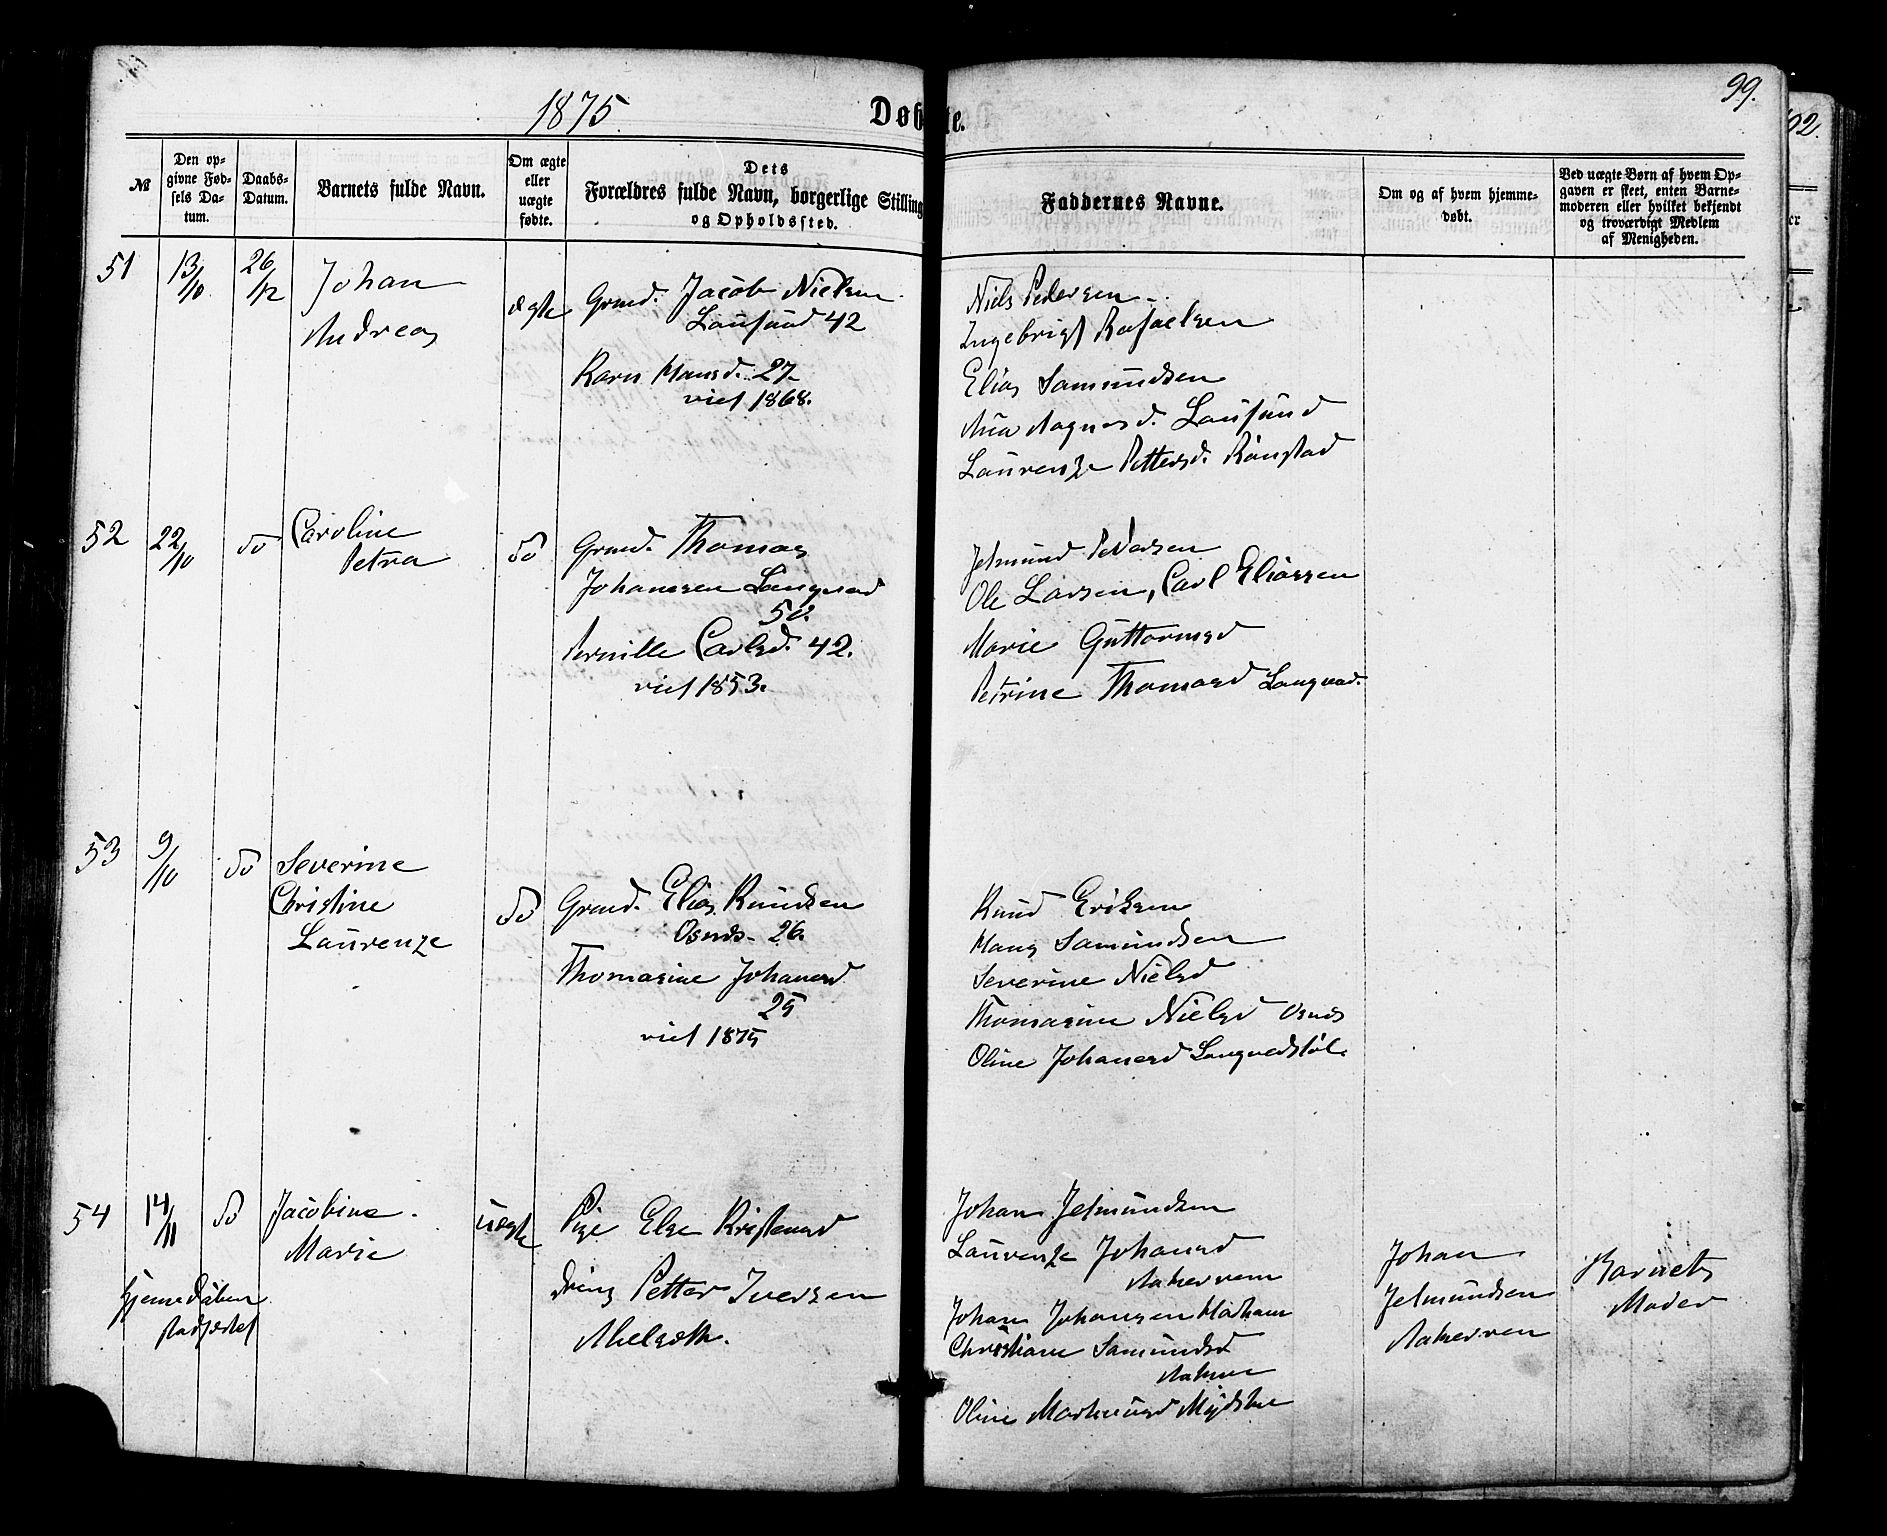 1875.
Døbte.
99.
№
Den opgivne Fødsels Datum.
Daabs-Datum.
Barnets fulde Navn.
Om ægte eller uægte fødte.
Dets Forældres fulde Navn, borgerlige Stilling og Opholdssted.
Faddernes Navne.
Om og af hvem hjemmedøbt.
Ved uægte Børn af hvem Opgaven er skeet, enten Barnemoderen eller hvilket bekjendt og troværdigt Medlem af Menigheden.
51
13/10
26/12
Johan
Andreas
ægte
Grmd. Jacob Nielsen
Lausund 42
Karn Hansd. 27
viet 1868.
Niels Pedersen
Ingebrigt Rafaelsen
Elias Samundsen
Ana Aagnesd. Lausund
Laurenze Pettersd. Rønstad
52
22/10
do
Caroline
Petra
do
Grmd. Thomas
Johansen Langvad
50.
Pernille Carlsd. 42.
viet 1853.
Jetmund Pedersen
Ole Larsen, Carl Eliassen
Marie Guttormsd
Petrine Thomasd Langvad.
53
9/10
do
Severine
Christine
Laurenze
do
Grmd. Elias Knudsen
Osnes 26.
Thomasine Johansd
25
viet 1875
Knud Eriksen
Hans Samundsen
Severine Nielsd
Thomasine Nielsd Osnes
Oline Johansd Langvadstøl
54
14/11
do
Jacobine
Marie
uægte
Pige Else Kristensd
Dreng Petter Iversen
Mielsæth.
Johan Jetmundsen
Laurenze Johansd
Aakervren
Johan Johansen
Christiane Samundsd
Oline
Johan
Jetmundsen
Aakervren
Barnets
Moder
Hjemmedåben
stadfæstet
102.